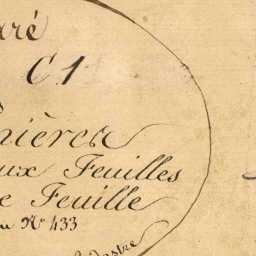 aré
C. 1
nières
ux Feuilles
e Feuille
u N° 433